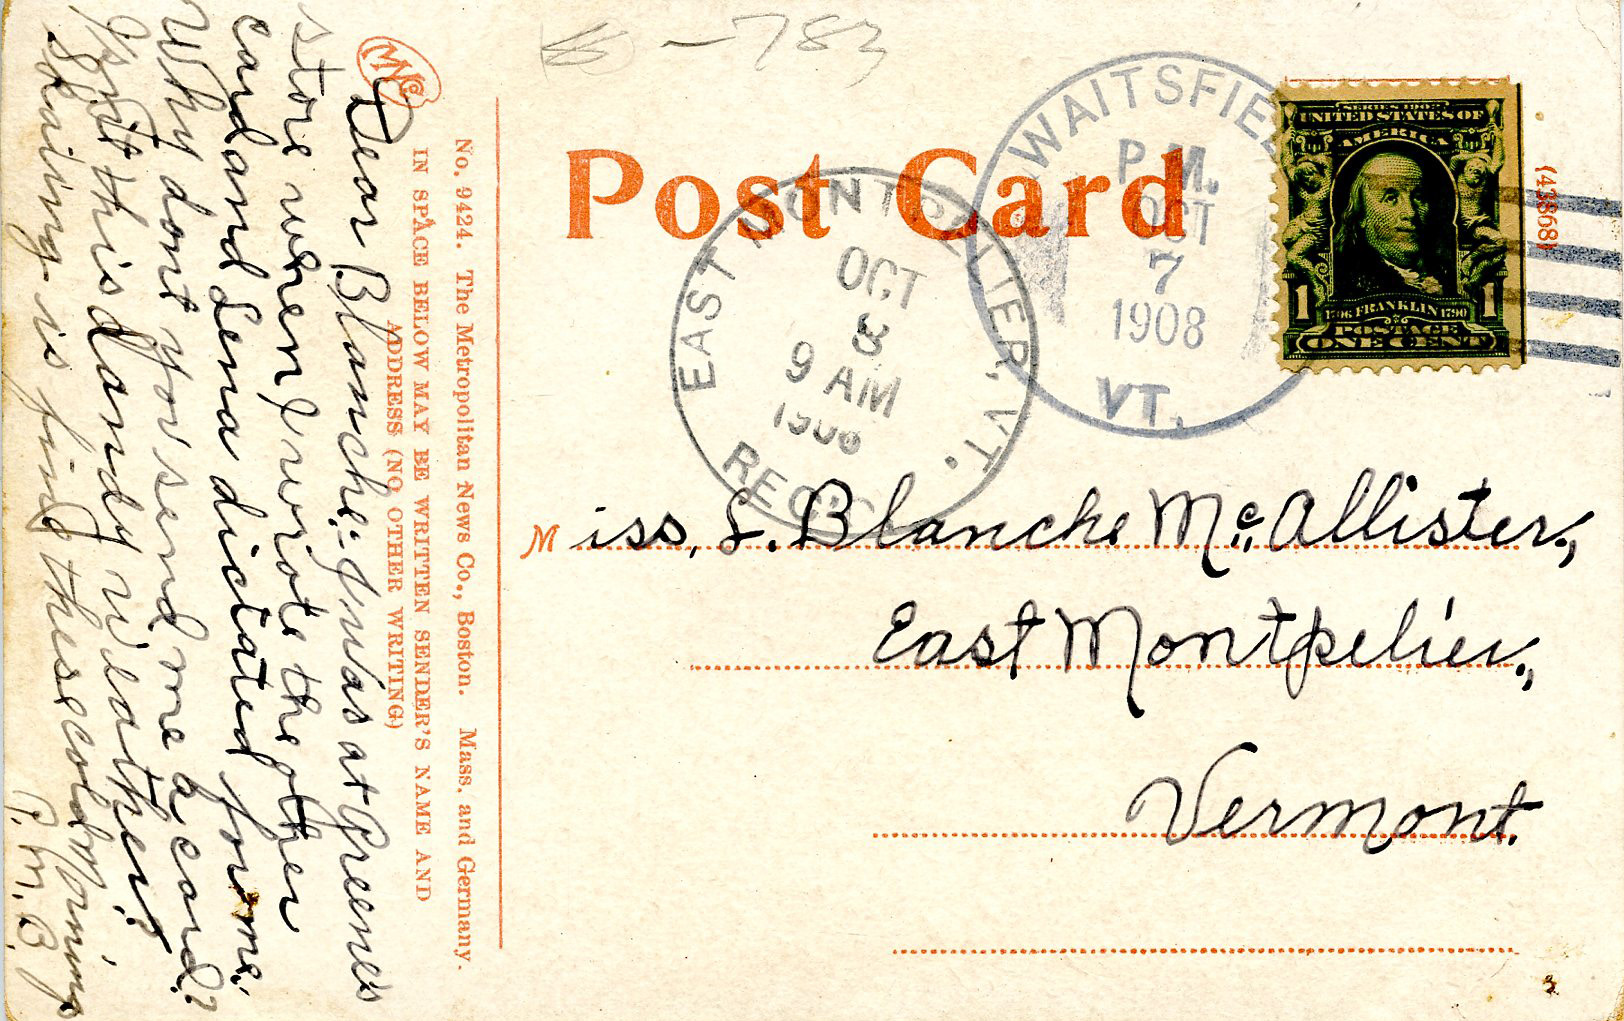 -783
Post Card
WAITSFIE
P.M.
OCT
7
1908
VT.
EAST MONTPELIER, VT.
OCT
8
9 AM
1908
REC'D
SERIES 1902
UNITED STATES OF
AMERICA
1706 FRANKLIN 1790
1 1
POSTAGE
ONE CENT
(43868)
No. 9424. The Metropolitan News Co., Boston. Mass. and Germany.
IN SPACE BELOW MAY BE WRITTEN SENDER'S NAME AND
ADDRESS (NO OTHER WRITING)
MNCo
Dear Blanche:- I was at Greene's
store when I wrote the other
card and Lena dictated for me.
Why dont you send me a card?
Isn't this dandy weather?
Skating is fine these cold mornings
P. M. B.
Miss, L. Blanche McAllister,
East Montpelier,
Vermont.
3